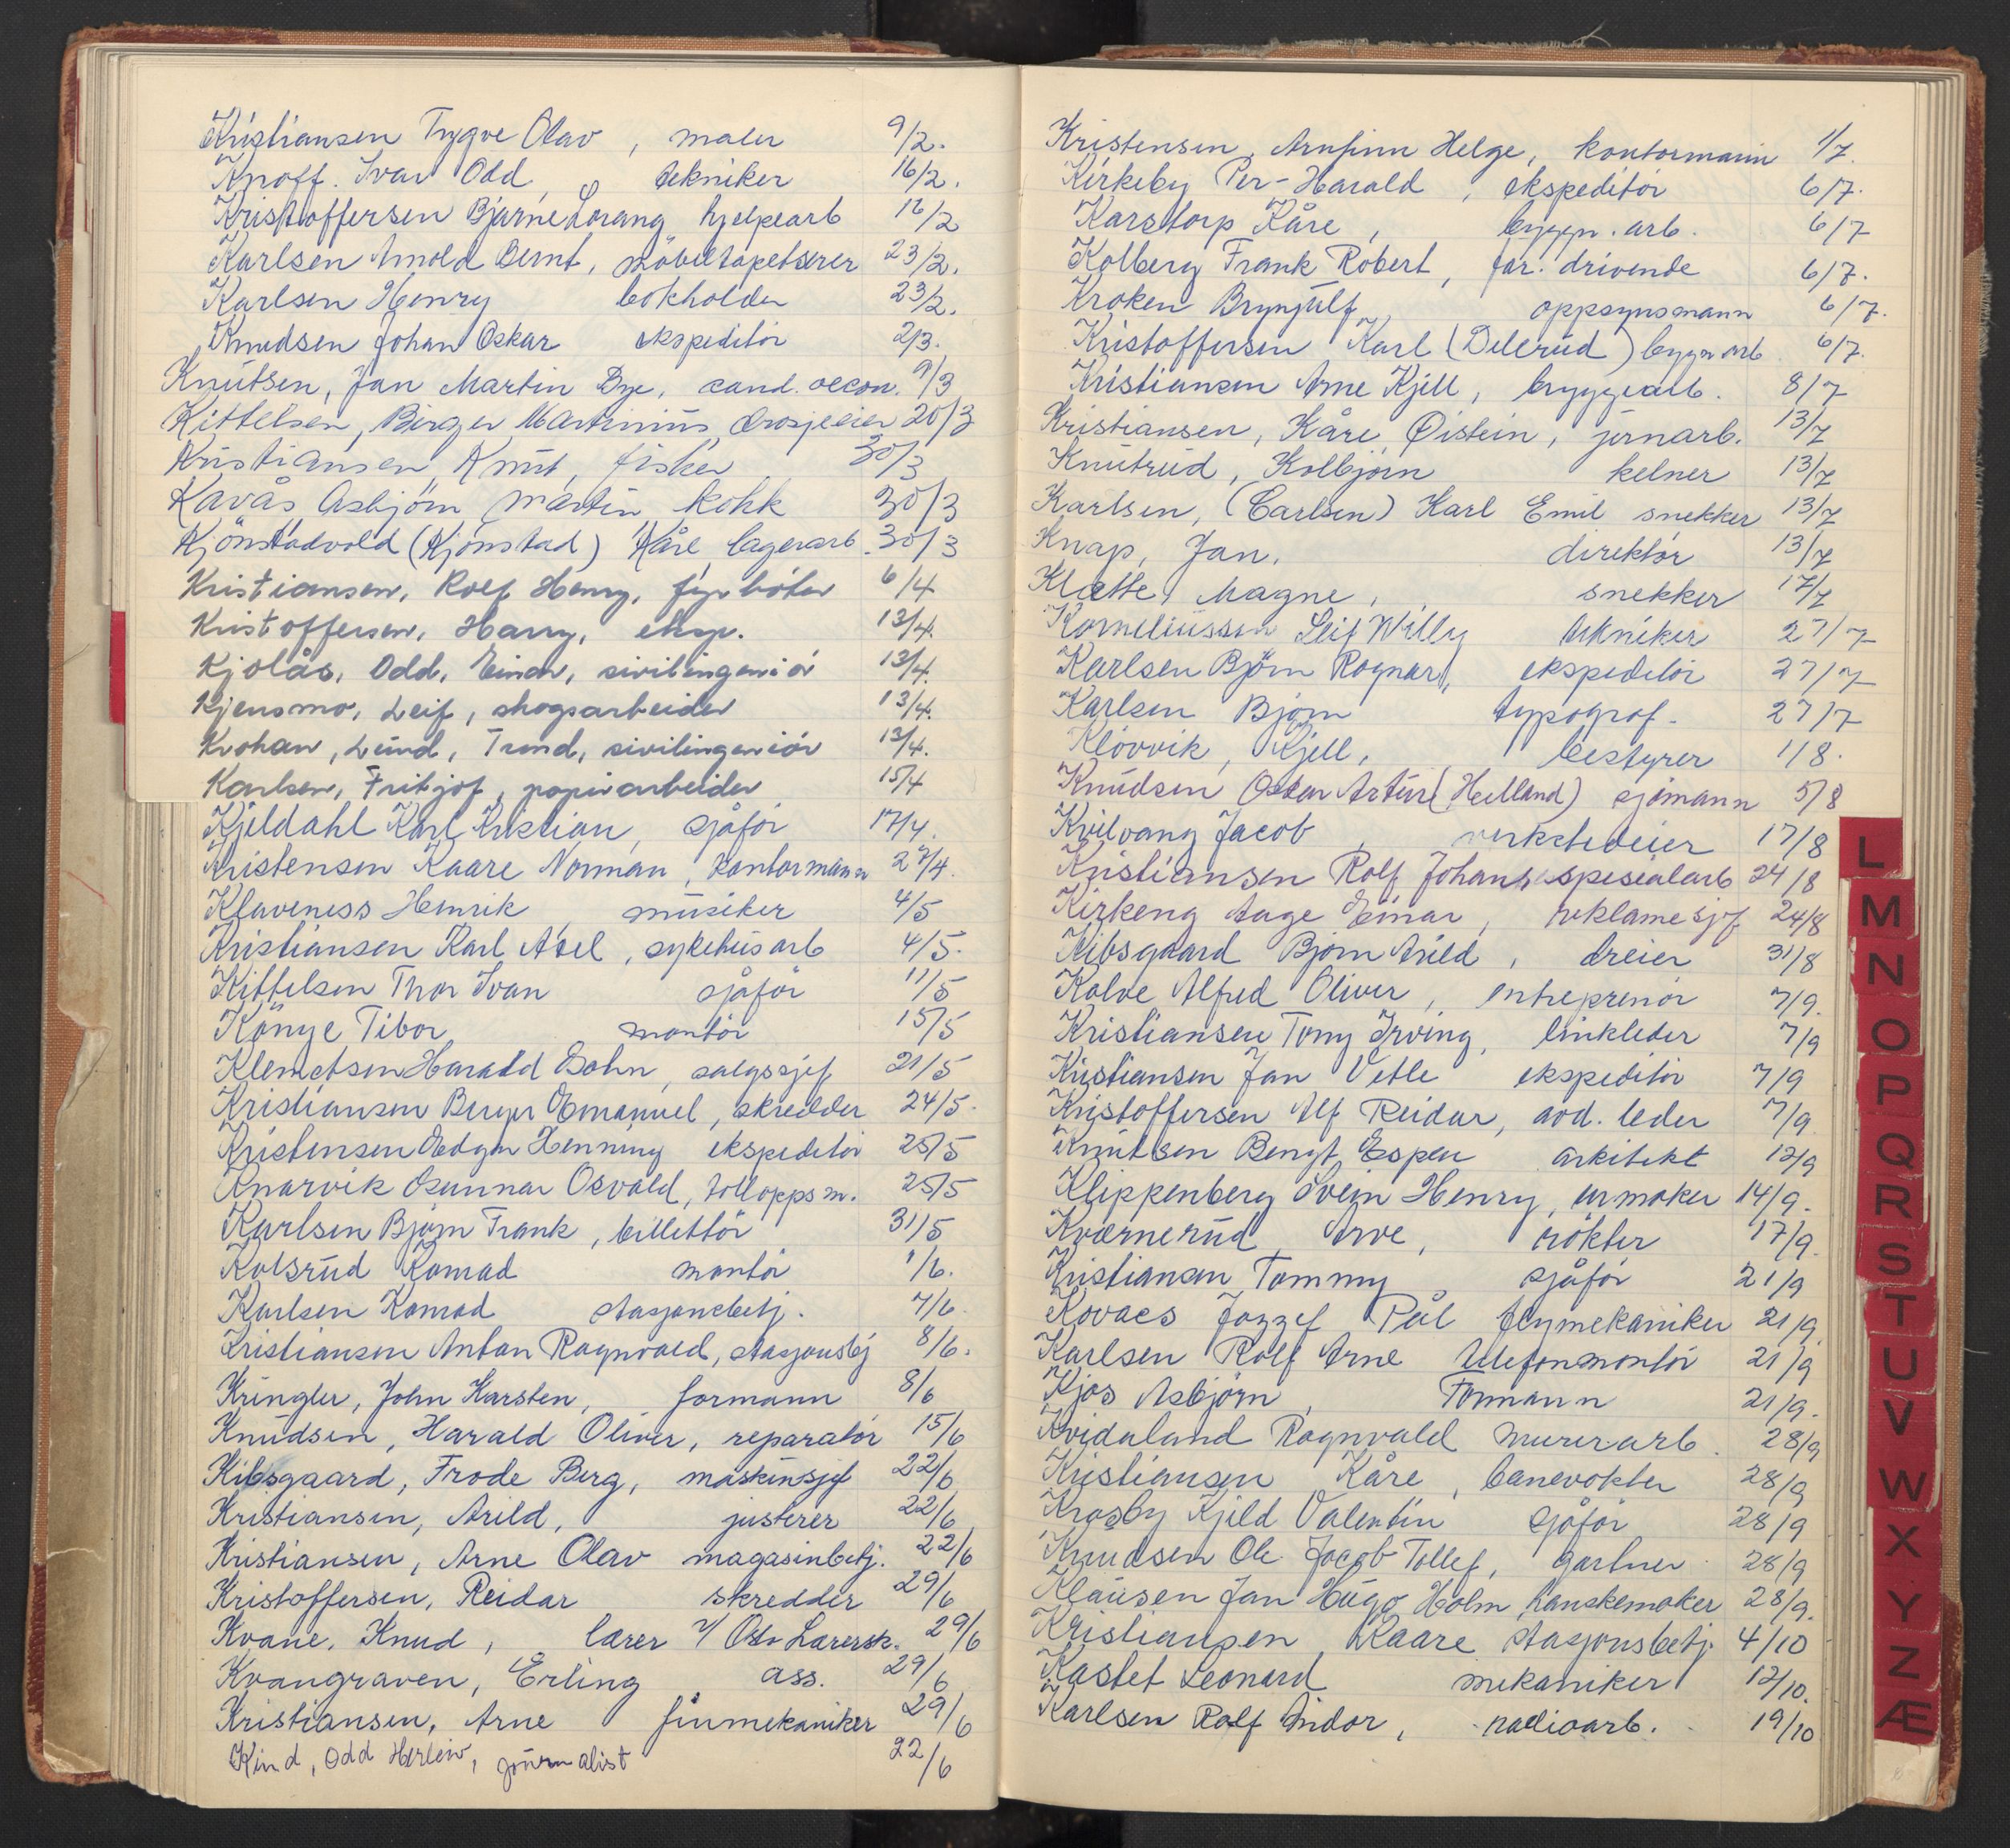 Kristiansen Trygve Olav, maler 9/2.
Knoff. Ivar Odd, tekniker 16/2.
Kristoffersen Bjarne Lorang hjelpearb 16/2
Karlsen Arnold Bernt, möbeltapetserer 23/2.
Karlsen Henry bokholder 23/2.
Knudsen Johan Oskar ekspeditör 2/3.
Knutsen, Jan Martin Bye, cand. oecon. 9/3
Kittelsen, Birger Martinius, drosjeeier 20/3
Kristiansen Knut, fisker 30/3
Kavås Asbjörn Martin kokk 30/3
Kjönstadvold (Kjönstad) Kåre lagerarb. 30/3
Kristiansen, Rolf Henry, fyrböter 6/4
Kristoffersen, Harry, eksp. 13/4.
Kjölås, Odd, Einar, sivilingeniör 13/4.
Kjensmo, Leif, skogsarbeider 13/4.
Krohan, Lund, Trond, sivilingeniör 13/4.
Karlsen, Fritjof, papirarbeider 15/4
Kjeldahl Karl Kristian, sjåför 17/4.
Kristensen Kaare Norman, kontormann 27/4.
Klaveness Henrik, musiker 4/5
Kristiansen Karl Aksel, sykehusarb 4/5.
Kittelsen Thor Ivan sjåför 11/5
Könye Tibor montör 15/5
Klemetsen Harald John, salgssjef 21/5
Kristiansen Birger Emanuel, skredder 24/5.
Kristensen Edgar Henning ekspeditör 25/5
Knarvik Gunnar Osvald, tolloppsm. 25/5
Karlsen Björn Frank, billettör 31/5
Kolsrud Konrad montör 1/6.
Karlsen Konrad stasjonsbetj. 4/6
Kristiansen Anton Ragnvald, stasjonsbj 8/6.
Kringler, John Karsten, formann 8/6
Knudsen, Harald Oliver, reparatör 15/6
Kibsgaard, Frode Berg, maskinsjef 22/6
Kristiansen, Arild, justerer 22/6
Kristiansen, Arne Olav magasinbetj. 22/6
Kristoffersen, Reidar skredder 29/6
Kvane, Knud, lærer v/ Oslo Lærersk. 29/6
Kvangraven, Erling ass. 29/6
Kristiansen, Arne finmekaniker 29/6
Kind, Odd Herleiv, journalist 22/6
Kristensen, Arnfinn Helge, kontormann 1/7.
Kirkeby Per-Harald, ekspeditör 6/7.
Karstorp Kåre, byggn. arb. 6/7
Kolberg Frank Robert, for. drivende 6/7.
Kroken Brynjulf, oppsynsmann 6/7.
Kristoffersen Karl (Delerud) byggn arb. 6/7.
Kristiansen Arne Kjell, bryggearb. 8/7
Kristiansen, Kåre Öistein, jernarb. 13/7
Knutrud, Kolbjörn kelner 13/7
Karlsen, (Carlsen) Karl Emil snekker 13/7
Knap, Jan, direktör 13/7
Klætte, Magne, snekker 17/7
Korneliussen Leif Willy tekniker 27/7
Karlsen Björn Ragnar, ekspeditör 27/7
Karlsen Björn typograf. 27/7
Klövvik, Kjell, bestyrer 1/8.
Knudsen Oskar Artur (Helland) sjömann 5/8
Kvilvang Jacob, verkstedeier 17/8
Kristiansen Rolf Johan, spesialarb 24/8
Kirkeng Aage Einar, reklamesjef 24/8
Kibsgaard Björn Arild, dreier 31/8
Kolve Alfred Oliver, entreprenör 7/9.
Kristiansen Tony Irving, linkleder 7/9
Kristiansen Jan Vetle ekspeditör 7/9
Kristoffersen Alf Reidar, avd. leder 7/9.
Knutsen Bengt Espen arkitekt 12/9
Klippenberg Svein Henry, urmaker 14/9.
Kværnerud Arve, rökter 17/9.
Kristiansen Tommy sjåför 21/9
Kovacs Jozzef Pål flymekaniker 21/9.
Karlsen Rolf Arne telefonmontör 21/9
Kjos Asbjörn, Formann 21/9.
Kvidaland Ragnvald murerarb. 28/9
Kristiansen Kåre, banevokter 28/9
Krosby Kjeld Valentin sjåför 28/9
Knudsen Ole Jacob Tollef, gartner 28/9
Klausen Jan Hugo Holm hanskemaker 28/9.
Kristiansen Kaare stasjonsbetj. 4/10
Kastet Leonard mekaniker 12/10.
Karlsen Rolf Indor, radioarb. 19/10
L
M
N
O
P
Q
R
S
T
U
V
W
X
Y
Z
Æ